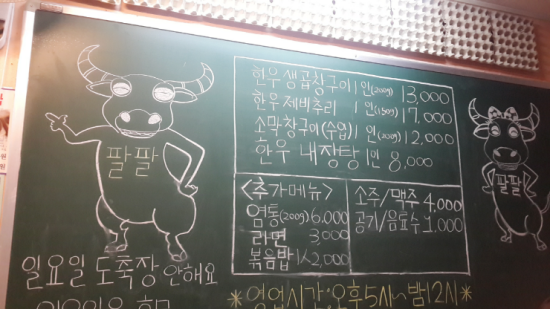 한우생곱창구이 1인(200g) 13,000
한우제비추리 1인(150g) 17,000
소막창구이(수입) 1인(200g) 12,000
한우 내장탕 1인 8,000
<추가메뉴>
염통(200g) 6,000
라면 3,000
볶음밥 1人 2,000
소주/맥주 4,000
공기/음료수 1,000
팔팔
팔팔
일요일 도축장 안해요
*영업시간:오후5시~밤12시*